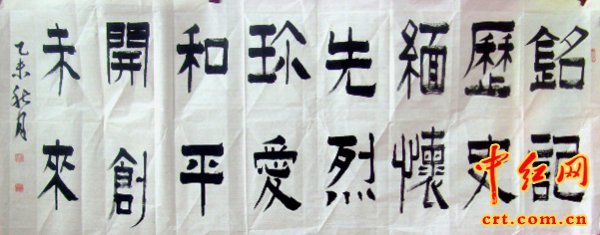 銘記
歷史
緬懷
先烈
珎愛
和平
開創
未來
乙未秋月
中红网
crt.com.cn